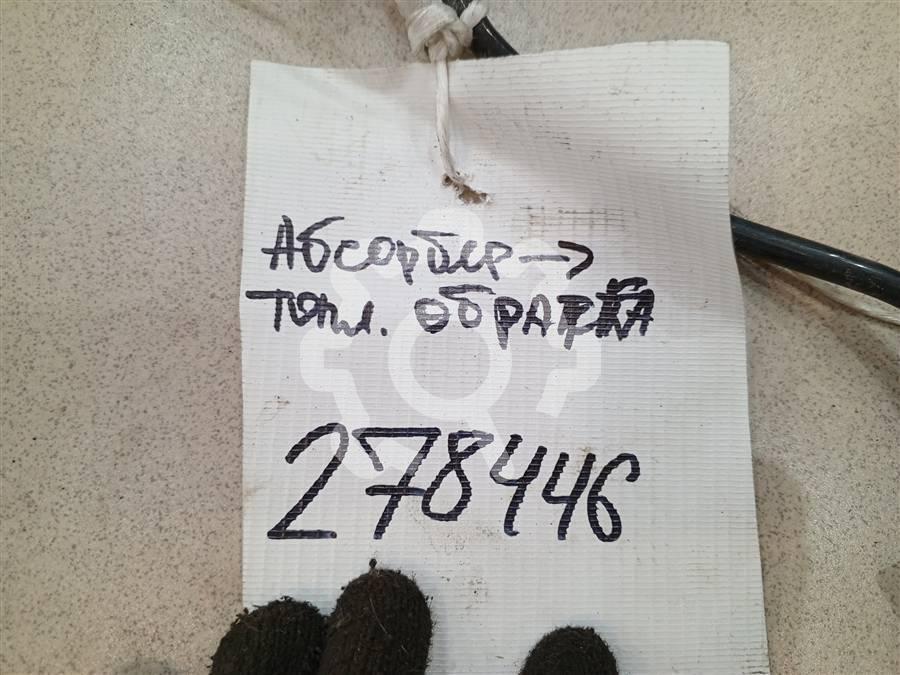 Абсорбер →
топл. обратка
278446